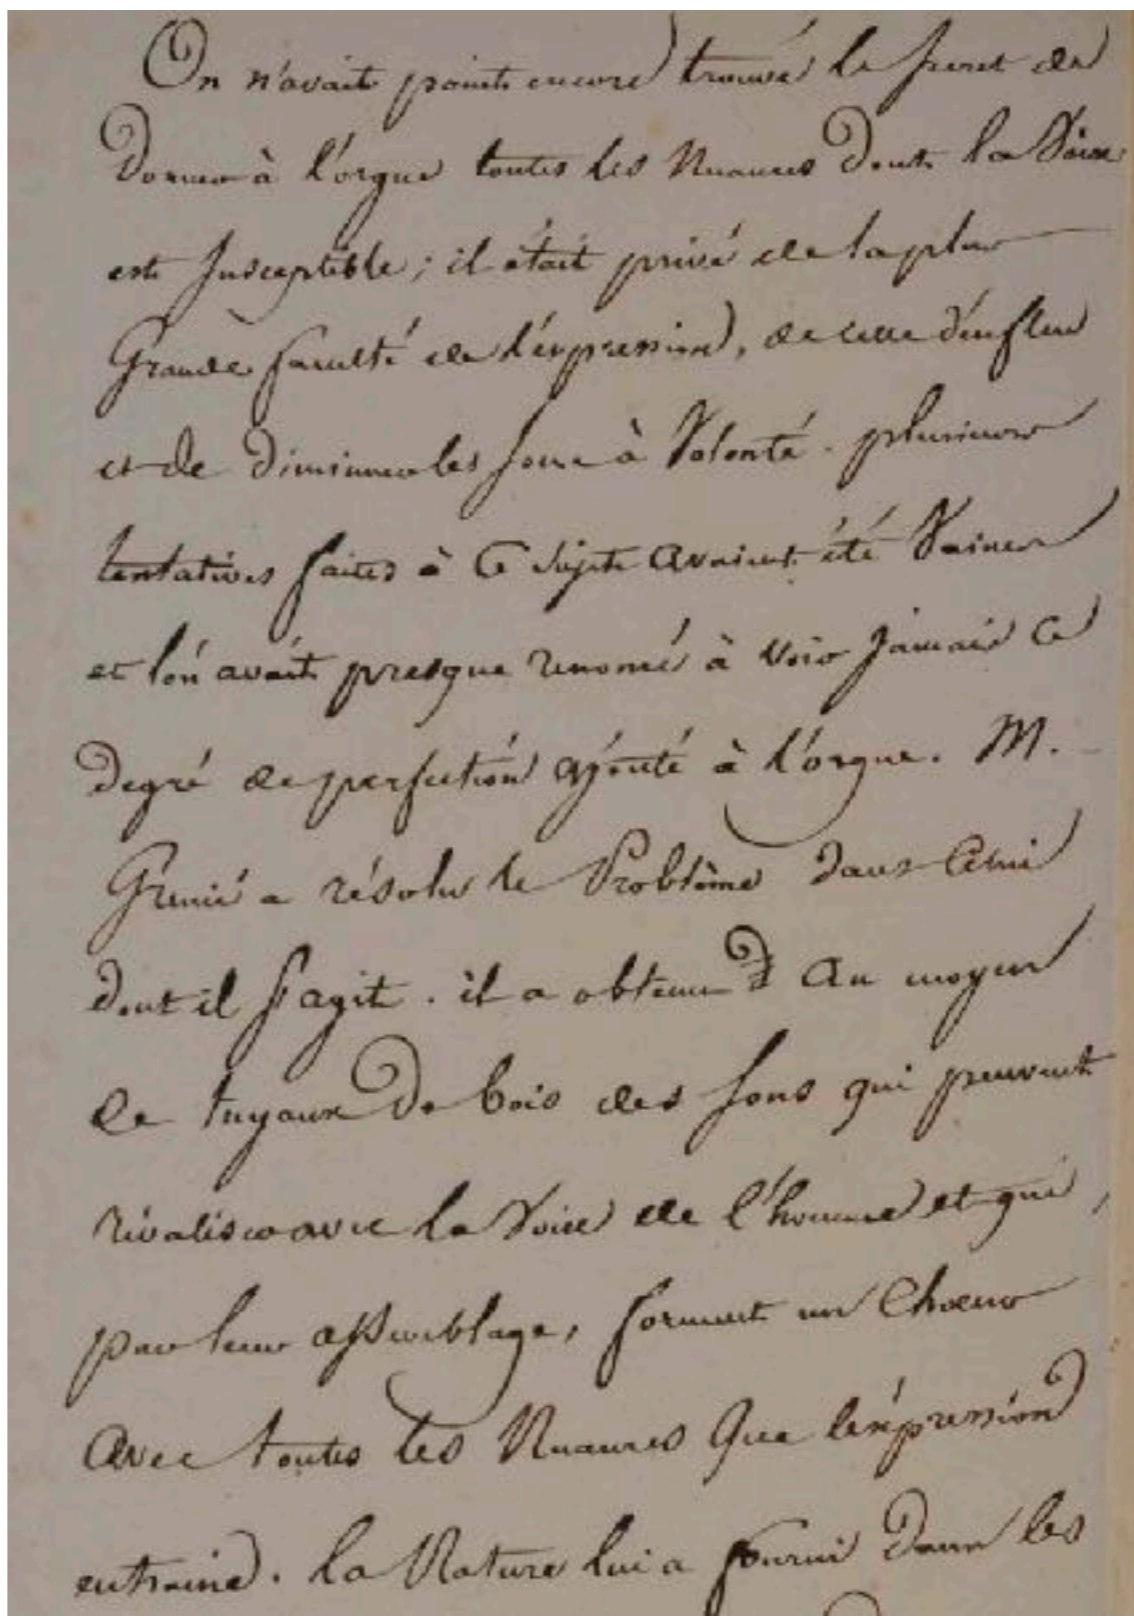 On n'avait point encore trouvé le secret de
donner à l'orgue toutes les Nuances dont la Voix
est susceptible ; il était privé de la plus
Grande faculté de l'expression, de celle d'enfler
et de diminuer les sons à Volonté. plusieurs
tentatives faites à Ce sujet avaient été Vaines
et l'on avait presque renoncé à voir jamais Ce
degré de perfection ajouté à l'orgue. M.
Grenié a résolu le Problême dans Celui
dont il s'agit. il a obtenu Au moyen
de tuyaux de bois des sons qui peuvent
rivaliser avec la Voix de l'homme et qui,
par leur assemblage, forment un Chœur
Avec toutes les Nuances Que l'expression
entraine. la Nature lui a fourni dans les